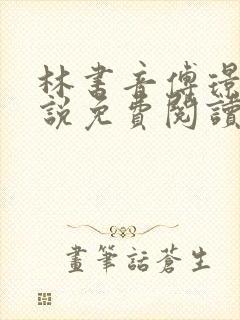 林書音傅璟
說免費閱讀
畫筆話蒼生